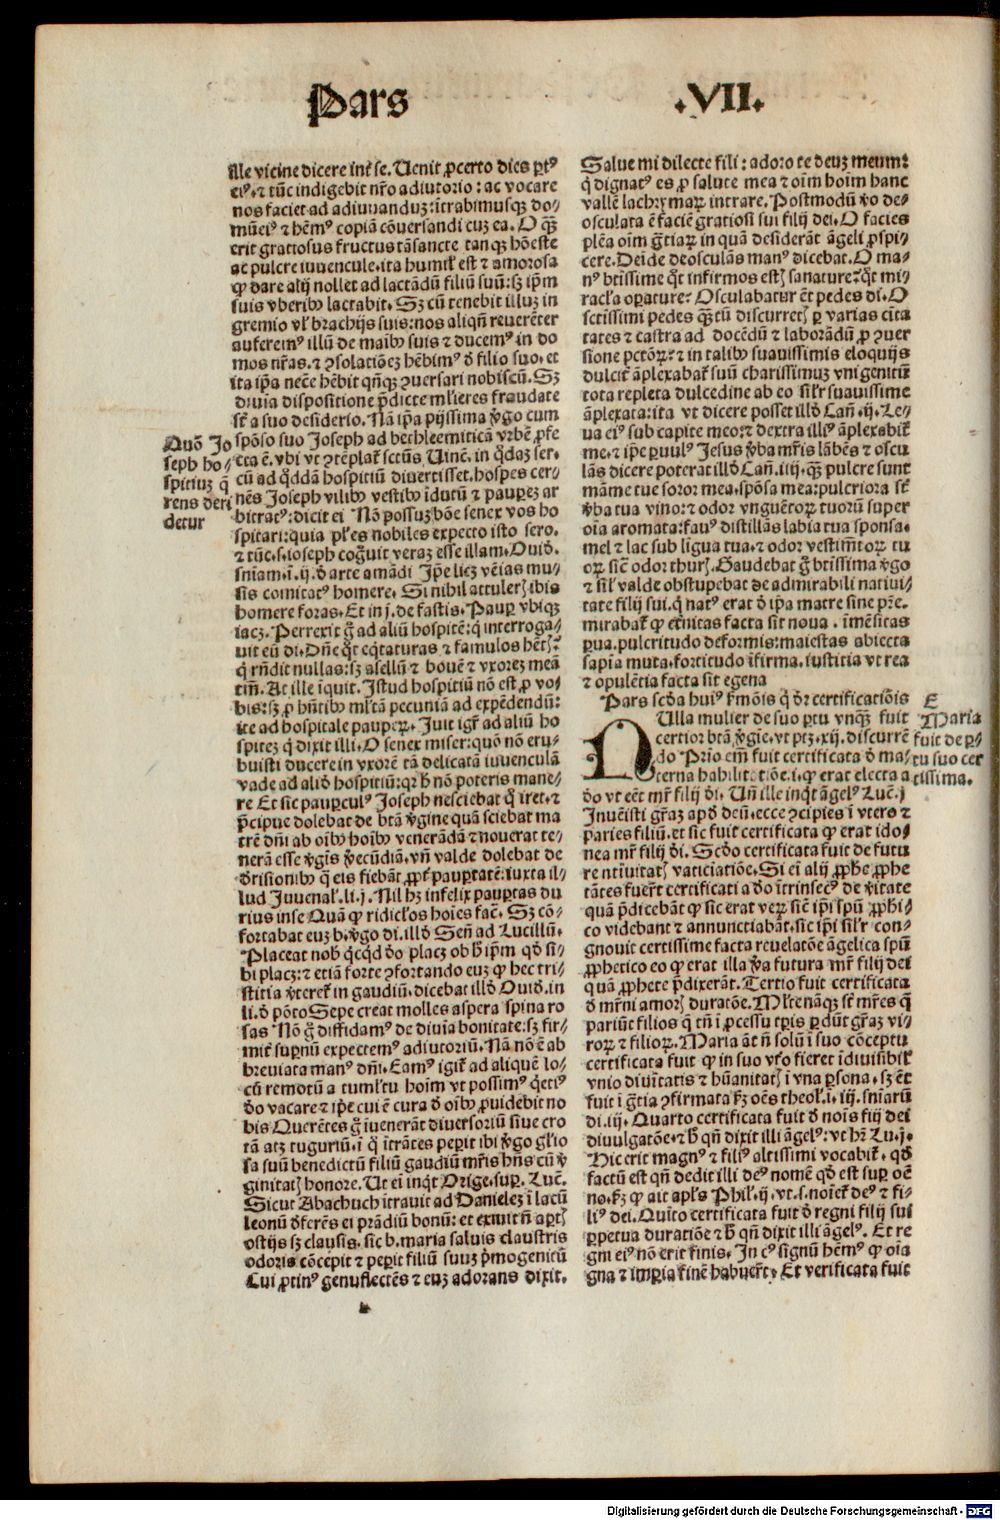 Pars .VII.
ille vicine dicere int̄ se. Uenit ꝓcerto dies ꝑtꝰ
eiꝰ.⁊ tūc indigebit nr̄o adiutorio: ac vocare
nos faciet ad adiuuanduz:ītrabimusqꝫ do⸗
mū eiꝰ ⁊ hēmꝰ copiā cōuersandi cuz ea. O qꝫ̄
erit gratiosus fructus tā sancte tan qꝫ hōeste
ac pulcre iuuencule.ita humil' est ⁊ amorosa
ꝙ dare alij nollet ad lactādū filiū suū:sꝫ ip̄m
suis vberibꝰ lactabit. Sꝫ cū tenebit illuz in
gremio vl' brachijs suis:nos aliqn̄ reuerēter
auferemꝰ illū de maibꝰ suis ⁊ ducemꝰ in do
mos nr̄as.⁊ ꝯsolatiōeꝫ hēbimꝰ đ filio suo.et
ita ip̄a necē hēbit qn̄qꝫ ꝯuersari nobiscū. Sꝫ
diuia dispositione p̄dicte ml'ieres fraudate
st̄ a suo desiderio. Nā ip̄a pijssima v̓go cum
Quō Jo
seph ho⸗
spitiuꝫ q̄
rens deri
detur
spōso suo Joseph ad bethleemiticā vrbē ꝓfe
cta ē.vbi vt ꝯtēplat̄ sctūs Uinc̄. in qdaꝫ ser.
cū ad qddā hospitiū diuertisset.hospes cer⸗
nēs Joseph vilibꝰ vestibꝰ īdutū ⁊ pauꝑeꝫ ar
bitratꝰ:dicit ei Nō possuꝫ bōe senex vos ho
spitari:quia pl'es nobiles expecto isto sero.
⁊ tūc.s.ioseph cog̓uit veraꝫ esse illam. Ouid̓.
sn̄iam.ī.ij.đ arte amādi Jp̄e licꝫ vēias mu⸗
sis comitatꝰ homere. Si nihil attuler̄ ibis
homere foras. Et in j.de fastis. Pauꝑ vbiqꝫ
iacꝫ. Perrexit g̓ ad aliū hospitē:q̄ interroga⸗
uit eū di. Dn̄e qt eqtaturas ⁊ famulos hēt̄?
q̄ rn̄dit nullas:sꝫ asellū ⁊ bouē ⁊ vxoreꝫ meā
tm̄. At ille īquit. Jstud hospitiū nō est ꝓ vo⸗
bis:sꝫ ꝓ hn̄tibꝰ ml'tā pecuniā ad expēdendū:
ite ad hospitale pauꝑeꝝ. Juit igr̄ ad aliū ho
spiteꝫ q̄ dixit illi. O senex miser:quō nō eru⸗
buisti ducere in vxorē tā delicatā iuuenculā
vade ad aliđ hospitiū:qr h̄ nō poteris mane⸗
re Et sic pauꝑculꝰ Joseph nesciebat q̄ iret.⁊
p̄cipue dolebat de btā v̓gine quā sciebat ma
trē dn̄i ab oībꝰ hoībꝰ venerādā ⁊ nouerat te⸗
nerā esse v̓gis v̓ecūdiā.vn̄ valde dolebat de
đrisionibꝰ q̄ eis fiebāt ꝓpt̄ pauꝑtatē:iuxta il⸗
lud Juuenal'.li.j. Nil hꝫ infelix pauꝑtas du
rius in se Quā ꝙ ridicl'os hoīes fac̄. Sꝫ cō⸗
fortabat euꝫ b.v̓go di.illđ Sen̄ ad Lucillū.
Placeat nob̄ qcqđ đo placꝫ ob h̄ ip̄m qđ si⸗
bi placꝫ:⁊ etiā forte ꝯfortando euꝫ ꝙ hec tri⸗
stitia v̓teret̄ in gaudiū.dicebat illđ Ouid̓.in
li.đ pōto Sepe creat molles aspera spina ro
sas Nō g̓ diffidamꝰ de diuia bonitate:sꝫ fir⸗
mit̄ suꝑnū expectemꝰ adiutoriū. Nā nō ē ab
breuiata manꝰ dn̄i. Eamꝰ igit̄ ad aliquē lo⸗
cū remotū a tuml'tu hoīm vt possimꝰ q̄etiꝰ
đo vacare ⁊ ip̄e cui ē cura đ oībꝰ ꝓuidebit no
bis Querētes g̓ īuenerāt diuersoriū siue cro
tā atꝫ tuguriū.ī q̄ ītrātes peꝑit ibi v̓go gl'io
sa suū benedictū filiū gaudiū mr̄is hn̄s cū v̓
ginitat̄ honore. Ut ei inqt Orige.suꝑ.Luc̄.
Sicut Abachuch ītrauit ad Danieleꝫ ī lacū
leonū đferēs ei prādiū bonū: et exiuit n̄ aꝑt̄
ostijs sꝫ clausis.sic b.maria saluis claustris
odoris cōcepit ⁊ peꝑit filiū suuꝫ p̄mogenitū
Cui ꝓtinꝰ genuflectēs ⁊ euꝫ adorans dixit.
Salue mi dilecte fili: adoro te deuꝫ meum:
q̄ dignatꝰ es ꝓ salute mea ⁊ oīm hoīm hanc
vallē lachrymaꝝ intrare. Postmodū v̓o de⸗
osculata ē faciē gratiosi sui filij dei. O facies
plēa oīm gr̄tiaꝝ in quā desiderāt āgeli ꝓspi⸗
cere. Deīde deosculās manꝰ dicebat. O ma⸗
nꝰ btīssime qt infirmos est̄ sanature?qt mi⸗
racl'a oꝑature? Osculabatur ēt pedes di. O
sctīssimi pedes qꝫ̄tū discurret̄ ꝑ varias ciīta
tates ⁊ castra ad docēdū ⁊ laborādū ꝓ ꝯuer
sione pctōꝝ:⁊ in talibꝰ suauissimis eloquijs
dulcit̄ āplexabat̄ suū charissimuꝫ vnigenitū
tota repleta dulcedine ab eo sil'r suauissime
āplexata:ita vt dicere posset illđ Can̄.ij. Le⸗
ua eiꝰ sub capite meo:⁊ dextra illiꝰ āplexabit̄
me.⁊ ip̄e ꝑuulꝰ Jesus v̓ba mr̄is lābēs ⁊ oscu
lās dicere poterat illđ Can̄.iiij. qꝫ̄ pulcre sunt
māme tue soror mea.spōsa mea:pulcriora st̄
v̓ba tua vino:⁊ odor vnguētoꝝ tuorū super
oīa aromata:fauꝰ distillās labia tua sponsa.
mel ⁊ lac sub ligua tua.⁊ odor vestimt̄oꝝ tu
oꝝ sic̄ odor thur̄. Gaudebat g̓ btīssima v̓go
⁊ sil'r valde obstupebat de admirabili natiui⸗
tate filij sui.q̄ natꝰ erat đ ip̄a matre sine pr̄e.
mirabat̄ ꝙ et̄nitas facta sit noua . īmēsitas
ꝑua.pulcritudo deformis:maiestas abiecta
sapīa muta.fortitudo īfirma.iustitia vt rea
⁊ opulētia facta sit egena
Pars scđa huiꝰ s̄mōis q̄ đr certificatiōis
E
Maria
fuit de ꝑ⸗
tu suo cer
tissima.
NUlla mulier de suo ꝑtu vnqꝫ fuit
certior btā v̓gīe.vt ptꝫ.xij.discurrē
do Prio eīm fuit certificata đ ma⸗
terna habilitatiōe.i.ꝙ erat electa a
đo vt eēt mr̄ filij đi. Un̄ ille inqt āgelꝰ Luc̄.j
Jnuēisti gr̄aꝫ apđ deū.ecce ꝯcipies ī vtero ⁊
paries filiū.et sic fuit certificata ꝙ erat ido⸗
nea mr̄ filij đi. Scđo certificata fuit de futu
re ntīuitat̄ vaticiatiōe. Si ei alij ꝓph̄e ꝓphe
tātes fuer̄t certificati a đo ītrinsecꝰ de v̓itate
quā p̄dicebāt ꝙ sic erat veꝝ sic̄ ip̄i spū ꝓph̄i⸗
co videbant ⁊ annunctiabāt.sic ip̄i sil'r con⸗
gnouit certissime facta reuelatōe āgelica spū
ꝓphetico eo ꝙ erat illa v̓a futura mr̄ filij dei
quā ꝓphete p̄dixerāt. Tertio fuit certificata
đ mr̄ni amor̄ duratōe. Ml'te nāqꝫ st̄ mr̄es q̄
pariūt filios q̄ tn̄ ī ꝓcessu tꝑis ꝑdūt gr̄aꝫ vi⸗
roꝝ ⁊ filioꝝ. Maria āt n̄ solū ī suo cōceptu
certificata fuit ꝙ in suo vt̄o fieret īdiuisibil'
vnio diuītatis ⁊ hūanitat̄ ī vna ꝑsona.sꝫ ēt
fuit ī gr̄tia ꝯfirmata ẜꝫ oēs theol'.i.iij.sn̄iarū
di.iij. Quarto certificata fuit đ noīs fiij dei
diuulgatōe.⁊ h̄ qn̄ dixit illi āgelꝰ:vt hr̄ Lu.j.
Hic erit magnꝰ ⁊ filiꝰ altissimi vocabit̄. qđ
factū est qn̄ dedit illi deꝰ nomē qđ est suꝑ oē
no.ẜꝫ ꝙ ait apl's Phil'.ij.vt.s.noīet̄ deꝰ ⁊ fi⸗
liꝰ dei. Quīto certificata fuit đ regni filij sui
ꝑpetua duratiōe ⁊ h̄ qn̄ dixit illi āgelꝰ. Et re
gni eiꝰ nō erit finis. Jn cꝰ signū hēmꝰ ꝙ oīa
gna ⁊ imꝑia finē habuer̄t. Et verificata fuit
Digitalisierung gefördert durch die Deutsche Forschungsgemeinschaft - DFG